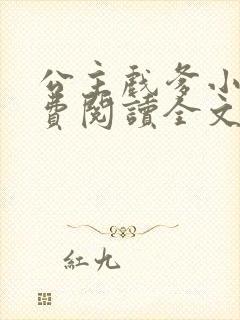 公主戲爹小
費閱讀全文
紅九